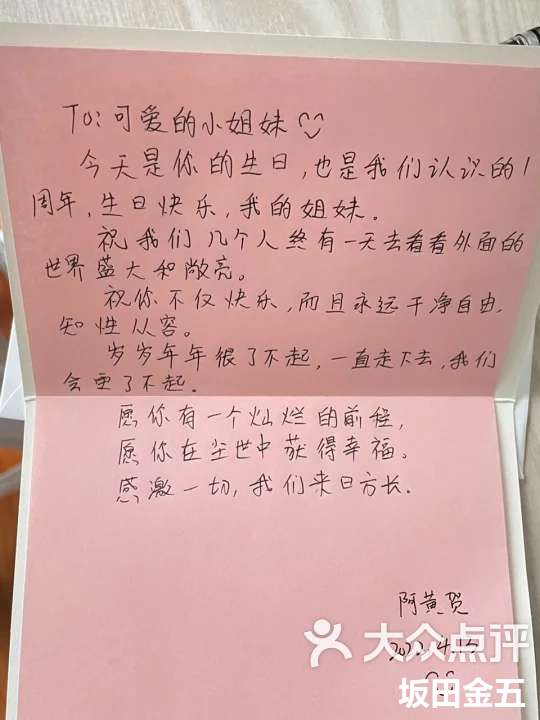 To:可爱的小姐妹
今天是你的生日,也是我们认识的1
周年,生日快乐,我的姐妹。
祝我们几个人终有一天去看看外面的
世界盛大和敞亮。
祝你不仅快乐,而且永远干净自由,
知性从容。
岁岁年年很了不起,一直走下去,我们
会更了不起.
愿你有一个灿烂的前程,
愿你在尘世中获得幸福。
感激一切,我们来日方长.
阿黄贺
大众点评
坂田金五